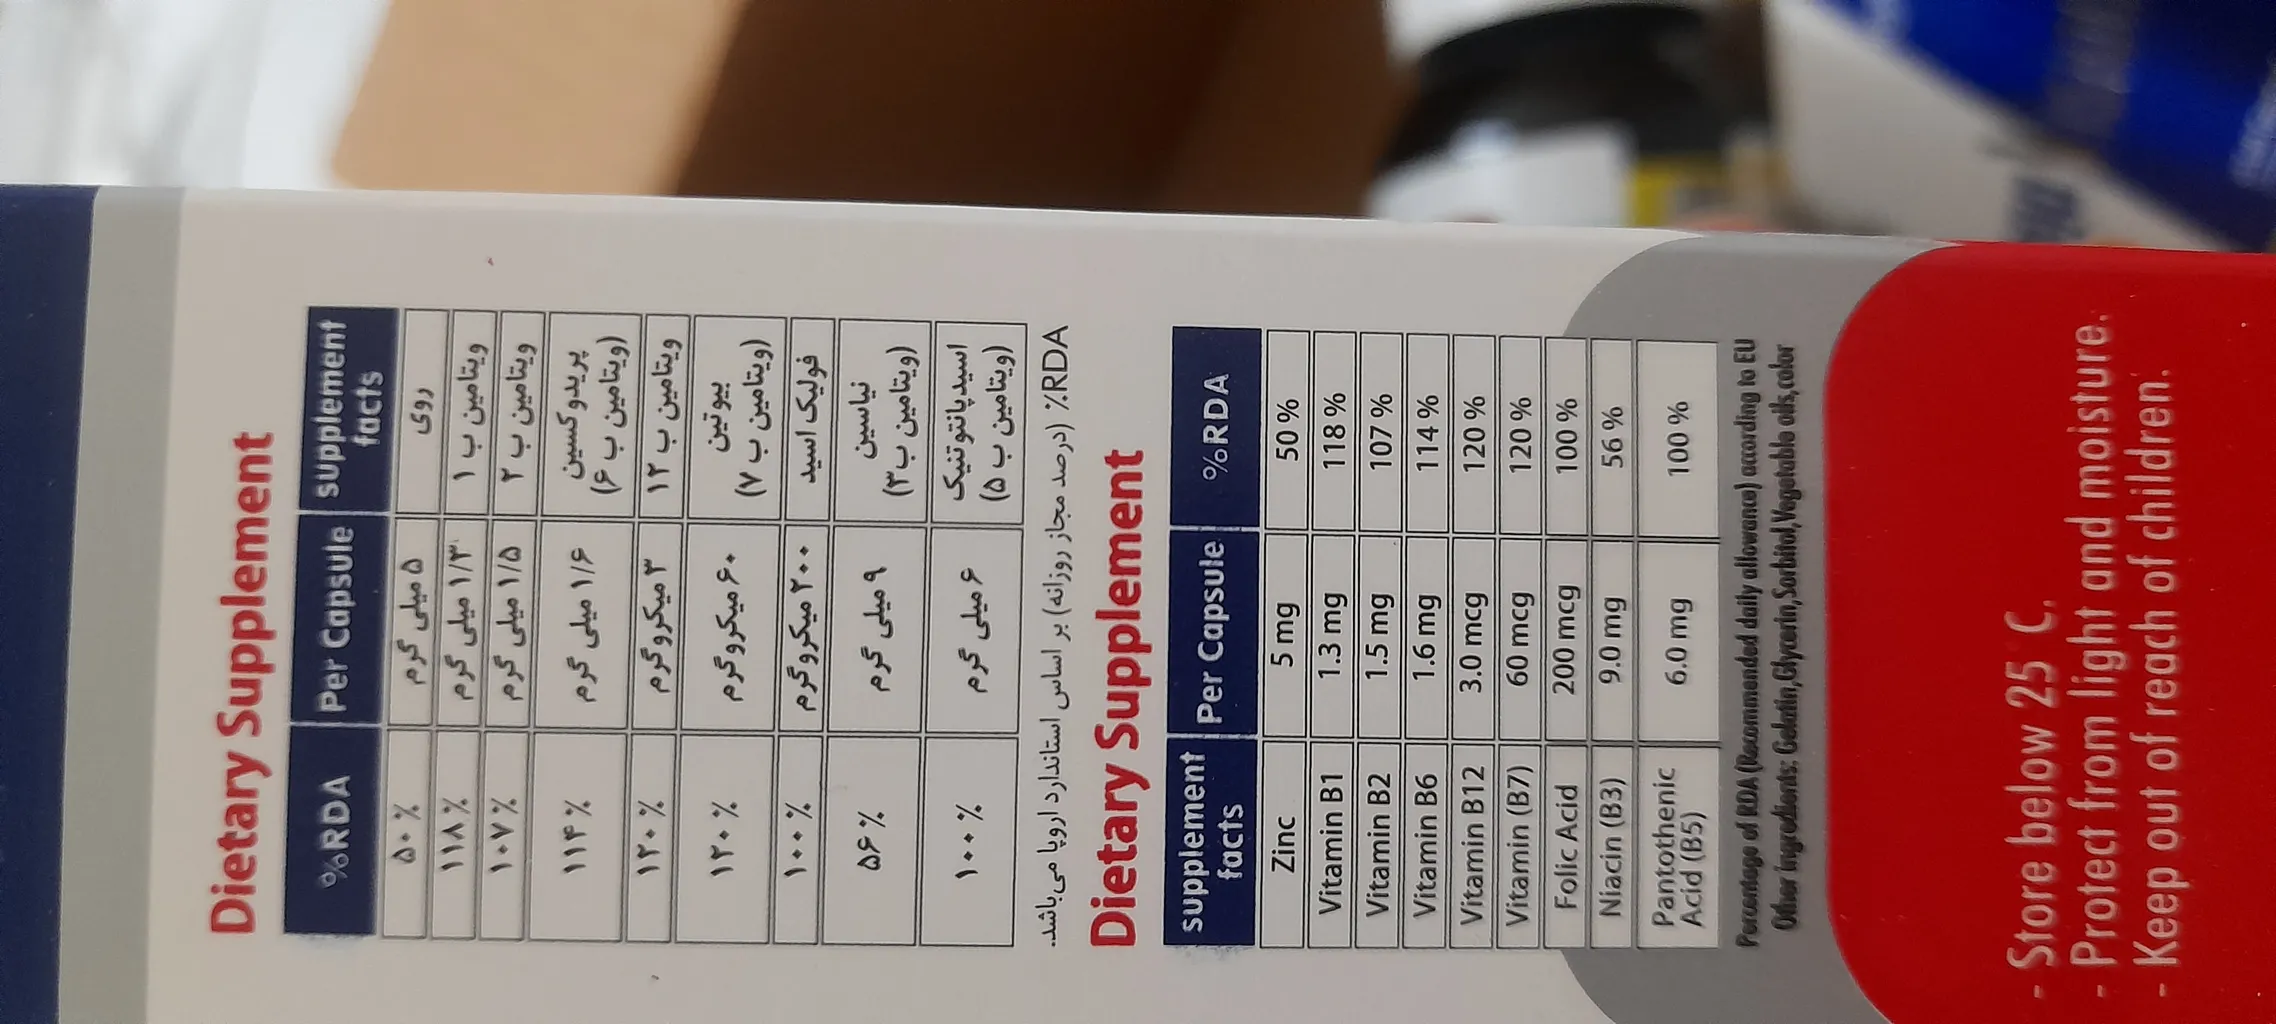 Dietary Supplement
%RDA Per Capsule supplement facts
۵۰٪ ۵ میلی گرم روی
۱۱۸٪ ۱/۳ میلی گرم ویتامین ب ۱
۱۰۷٪ ۱/۵ میلی گرم ویتامین ب ۲
۱۱۴٪ ۱/۶ میلی گرم پریدوکسین (ویتامین ب ۶)
۱۲۰٪ ۳ میکروگرم ویتامین ب ۱۲
۱۲۰٪ ۶۰ میکروگرم بیوتین (ویتامین ب ۷)
۱۰۰٪ ۲۰۰ میکروگرم فولیک اسید
۵۶٪ ۹ میلی گرم نیاسین (ویتامین ب۳)
۱۰۰٪ ۶ میلی گرم اسیدپانتوتنیک (ویتامین ب ۵)
RDA٪ (درصد مجاز روزانه) بر اساس استاندارد اروپا می‌باشد.
Dietary Supplement
supplement facts Per Capsule %RDA
Zinc 5 mg 50 %
Vitamin B1 1.3 mg 118 %
Vitamin B2 1.5 mg 107 %
Vitamin B6 1.6 mg 114 %
Vitamin B12 3.0 mcg 120 %
Vitamin (B7) 60 mcg 120 %
Folic Acid 200 mcg 100 %
Niacin (B3) 9.0 mg 56 %
Pantothenic Acid (B5) 6.0 mg 100 %
Percentage of RDA (Recommended daily allowance) according to EU
Other ingredients: Gelatin,Glycerin,Sorbitol,Vegetable oils,color
- Store below 25 C.
- Protect from light and moisture.
- Keep out of reach of children.